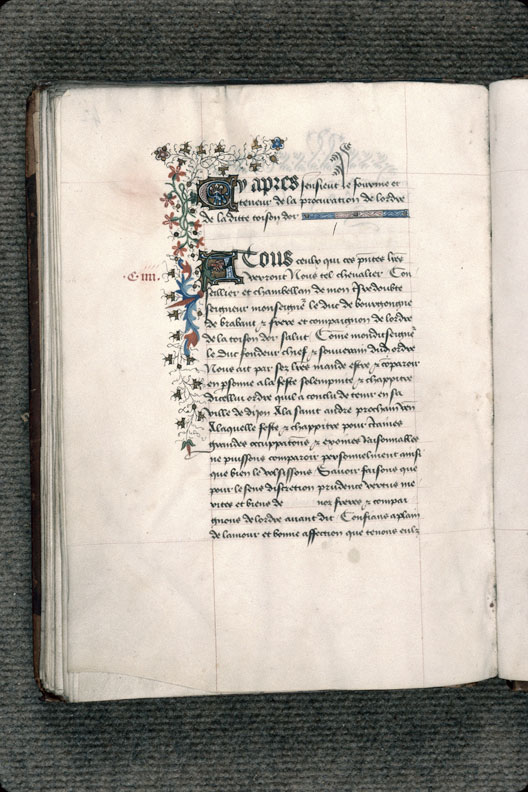 Cy apres sensieut le fourme et
teneur de la procuration de lordre
de la ditte toison dor
A Tous ceulx qui ces pñtes lrẽs
·C· iiii· verront Nous tel chevalier Con
seillier et chambellan de mon Tresdoubte
seigneur monseignr̃ le duc de bourgongne
de brabant ⁊ frere et compaignon de lordre
de la toison dor salut Cõme monditseignr̃
le duc fondeur chief ⁊ souverain dud ordre
Nous ait par sez lrẽs mande estre ⁊ cõparoir
en psonne a la feste solempnite ⁊ chappitre
dicellui ordre quil a conclu de tenir en sa
ville de dijon A la saint andre prochain ven
A laquelle feste ⁊ chappitre pour ctaines
grandes occuppatiõns ⁊ exoines raisonnables
ne puissons comparoir personnelment ainsi
que bien le volsissons Savoir faisons que
pour le sens discretion prudence vertus me
rites et biens de nor freres ⁊ compai
gnons de lordre avant dit Confians a plain
de lamour et bonne affection que tenons eulz